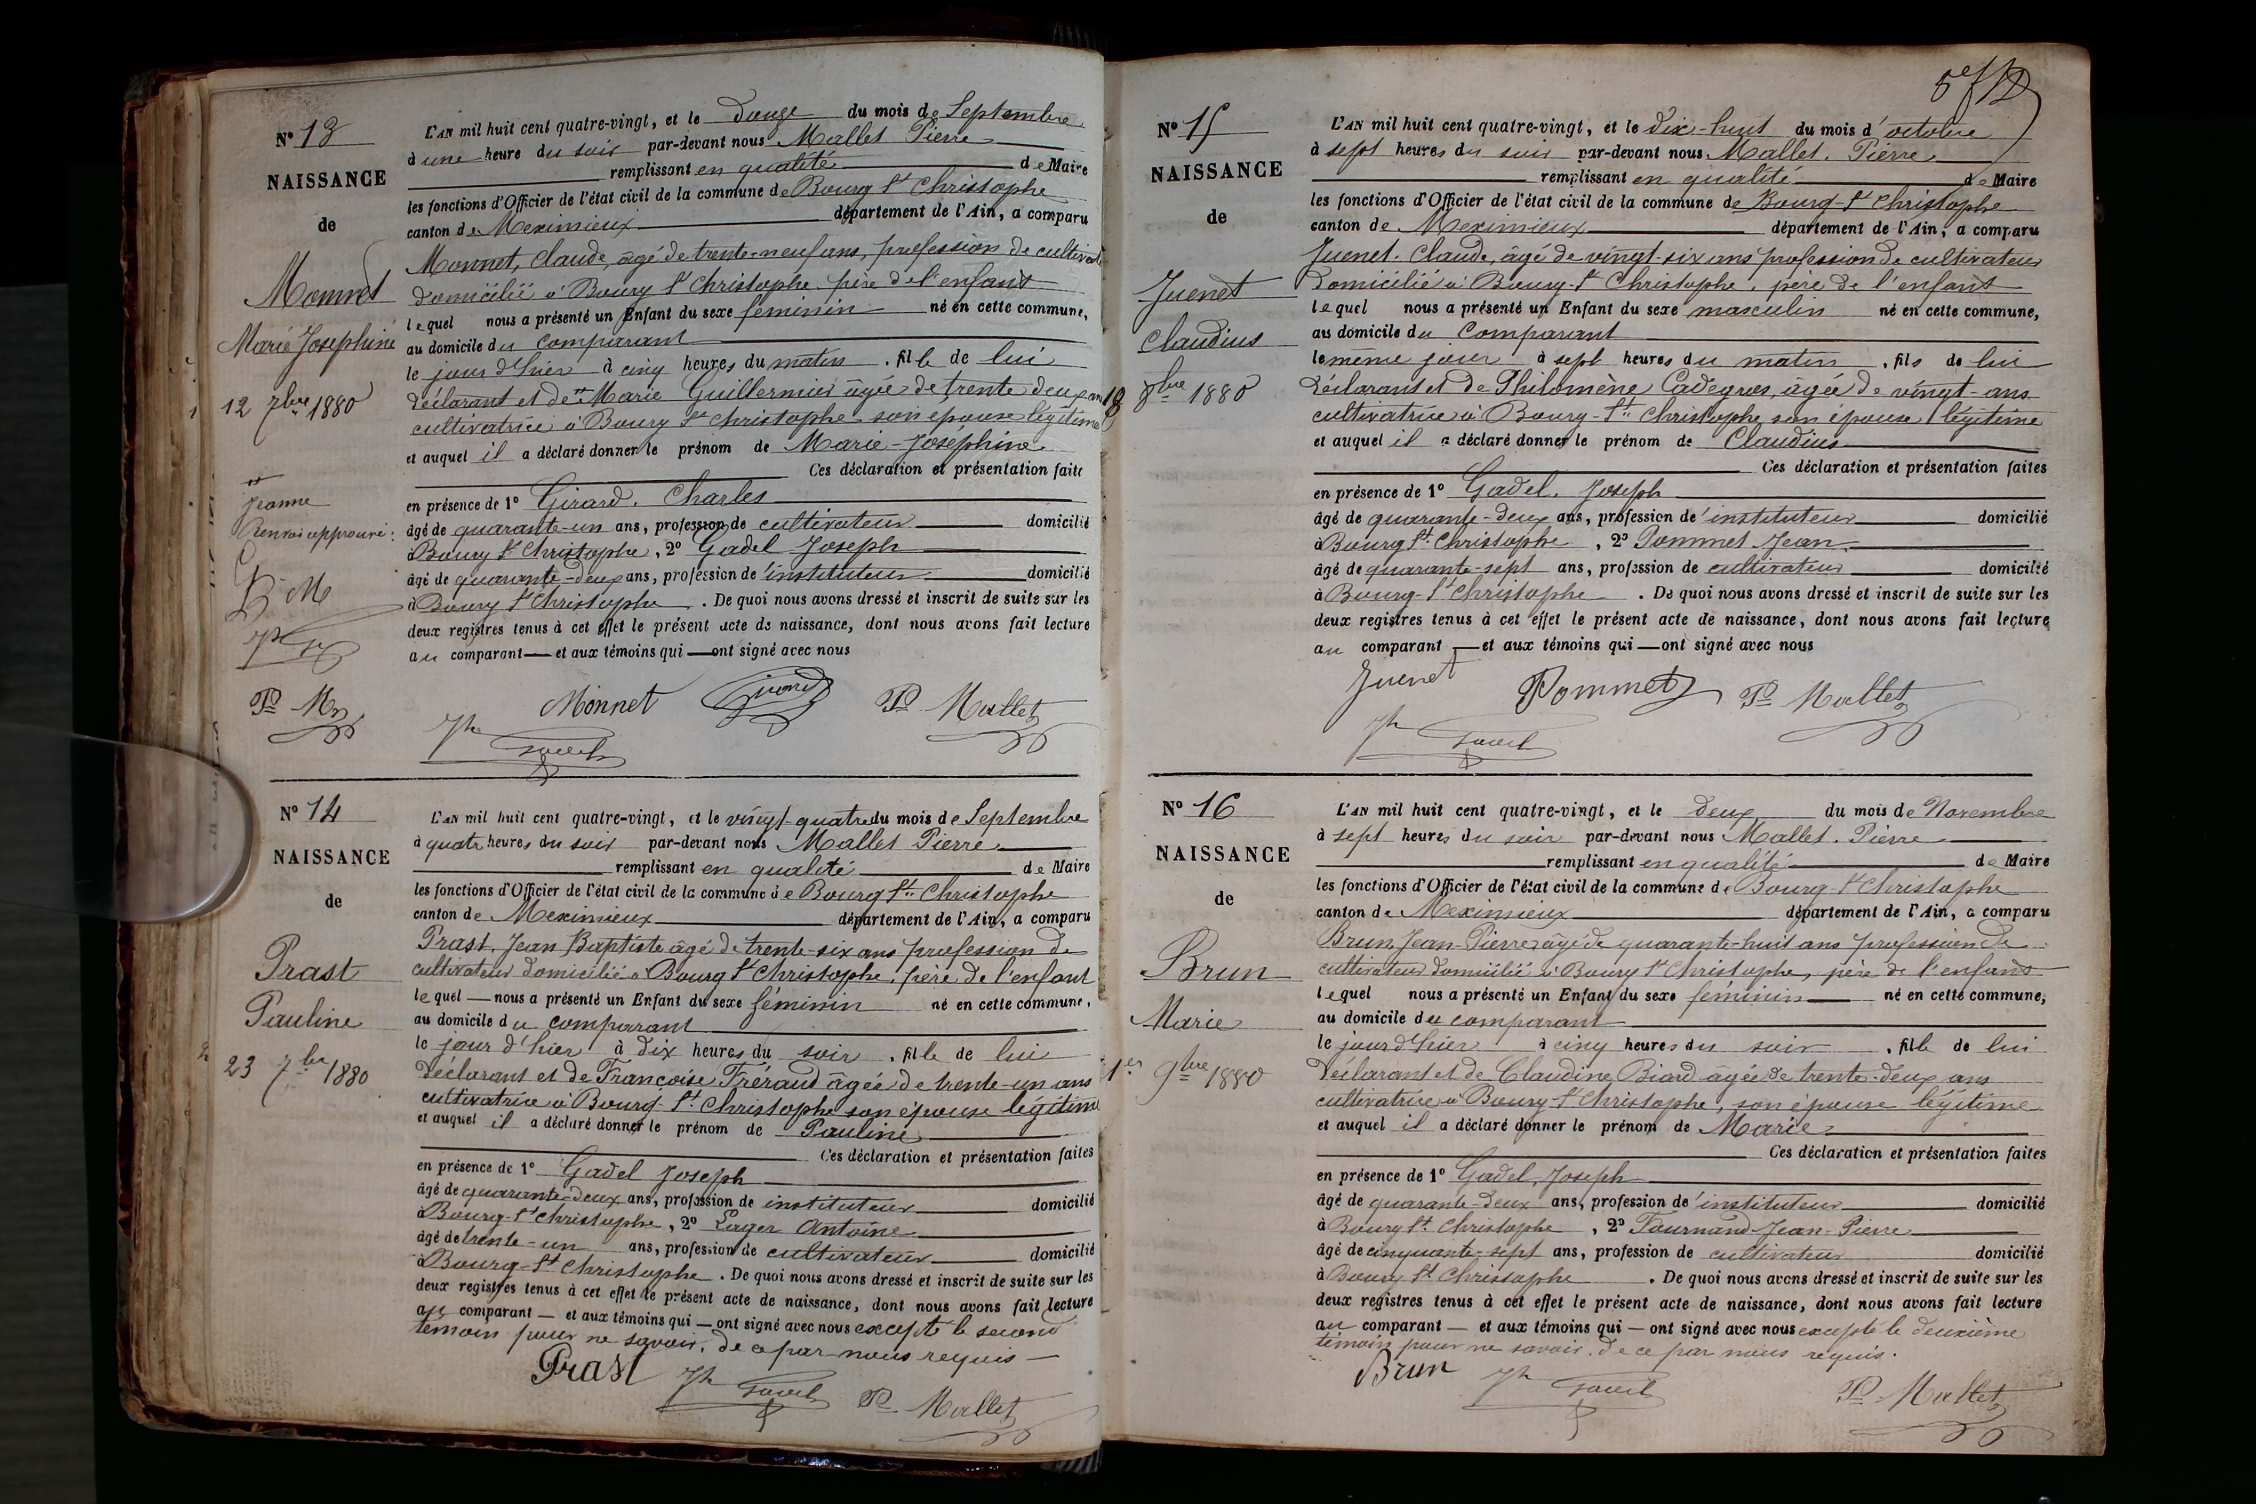 N° 13
NAISSANCE
de
Monnet
Marie Joséphine
12 7bre 1880
Jeanne
Renvoi approuvé :
P. M
Jh G
Pre M
L'AN mil huit cent quatre-vingt, et le Douze du mois de Septembre
à une heure du soir par-devant nous Mallet Pierre
remplissant en qualité de Maire
les fonctions d'Officier de l'état civil de la commune de Bourg St Christophe
canton de Meximieux département de l'Ain, a comparu
Monnet, Claude, âgé de trente-neuf ans, profession de cultivateur
domicilié à Bourg St Christophe, père de l'enfant
lequel nous a présenté un Enfant du sexe féminin né en cette commune,
au domicile du comparant
le jour d'hier à cinq heures du matin, fille de lui
déclarant et de Marie Guillermier âgée de trente deux ans
cultivatrice à Bourg St Christophe son épouse légitime
et auquel il a déclaré donner le prénom de Marie-Joséphine
Ces déclaration et présentation faite
en présence de 1° Girard. Charles
âgé de quarante-un ans, profession de cultivateur domicilié
à Bourg St Christophe, 2° Gadel Joseph
âgé de quarante-deux ans, profession de instituteur domicilié
à Bourg St Christophe. De quoi nous avons dressé et inscrit de suite sur les
deux registres tenus à cet effet le présent acte de naissance, dont nous avons fait lecture
au comparant et aux témoins qui ont signé avec nous
Monnet Girard Pre Mallet
Jh Gadel
N° 14
NAISSANCE
de
Prast
Pauline
23 7bre 1880
L'AN mil huit cent quatre-vingt, et le vingt-quatre du mois de Septembre
à quatre heures du soir par-devant nous Mallet Pierre
remplissant en qualité de Maire
les fonctions d'Officier de l'état civil de la commune de Bourg St Christophe
canton de Meximieux département de l'Ain, a comparu
Prast, Jean Baptiste âgé de trente-six ans profession de
cultivateur domicilié à Bourg St Christophe, père de l'enfant
lequel nous a présenté un Enfant du sexe féminin né en cette commune,
au domicile du comparant
le jour d'hier à dix heures du soir, fille de lui
déclarant et de Françoise Fréraud âgée de trente-un ans
cultivatrice à Bourg-St Christophe son épouse légitime
et auquel il a déclaré donner le prénom de Pauline
Ces déclaration et présentation faites
en présence de 1° Gadel Joseph
âgé de quarante-deux ans, profession de instituteur domicilié
à Bourg-St Christophe, 2° Lager Antoine
âgé de trente-un ans, profession de cultivateur domicilié
à Bourg-St Christophe. De quoi nous avons dressé et inscrit de suite sur les
deux registres tenus à cet effet le présent acte de naissance, dont nous avons fait lecture
au comparant et aux témoins qui ont signé avec nous excepté le second
témoin pour ne savoir, de ce par nous requis
Prast Jh Gadel Pre Mallet
N° 15
NAISSANCE
de
Juenet
Claudius
18 8bre 1880
L'AN mil huit cent quatre-vingt, et le dix-huit du mois d'octobre
à sept heures du soir par-devant nous Mallet. Pierre
remplissant en qualité de Maire
les fonctions d'Officier de l'état civil de la commune de Bourg-St Christophe
canton de Meximieux département de l'Ain, a comparu
Juenet. Claude, âgé de vingt-six ans profession de cultivateur
domicilié à Bourg-St Christophe, père de l'enfant
lequel nous a présenté un Enfant du sexe masculin né en cette commune,
au domicile du comparant
le même jour à sept heures du matin, fils de lui
déclarant et de Philomène Cadegros, âgée de vingt-ans
cultivatrice à Bourg-St Christophe son épouse légitime
et auquel il a déclaré donner le prénom de Claudius
Ces déclaration et présentation faites
en présence de 1° Gadel. Joseph
âgé de quarante-deux ans, profession de instituteur domicilié
à Bourg St. Christophe, 2° Pommet Jean
âgé de quarante-sept ans, profession de cultivateur domicilié
à Bourg-St Christophe. De quoi nous avons dressé et inscrit de suite sur les
deux registres tenus à cet effet le présent acte de naissance, dont nous avons fait lecture
au comparant et aux témoins qui ont signé avec nous
Juenet Pommet Pre Mallet
Jh Gadel
N° 16
NAISSANCE
de
Brun
Marie
1er 9bre 1880
L'AN mil huit cent quatre-vingt, et le deux du mois de Novembre
à sept heures du soir par-devant nous Mallet. Pierre
remplissant en qualité de Maire
les fonctions d'Officier de l'état civil de la commune de Bourg-St Christophe
canton de Meximieux département de l'Ain, a comparu
Brun, Jean-Pierre, âgé de quarante-huit ans profession de
cultivateur domicilié à Bourg St Christophe, père de l'enfant
lequel nous a présenté un Enfant du sexe féminin né en cette commune,
au domicile du comparant
le jour d'hier à cinq heures du soir, fille de lui
déclarant et de Claudine Biard âgée de trente-deux ans
cultivatrice à Bourg-St Christophe, son épouse légitime
et auquel il a déclaré donner le prénom de Marie
Ces déclaration et présentation faites
en présence de 1° Gadel, Joseph
âgé de quarante-deux ans, profession de instituteur domicilié
à Bourg St. Christophe, 2° Tournand Jean-Pierre
âgé de cinquante-sept ans, profession de cultivateur domicilié
à Bourg St Christophe. De quoi nous avons dressé et inscrit de suite sur les
deux registres tenus à cet effet le présent acte de naissance, dont nous avons fait lecture
au comparant et aux témoins qui ont signé avec nous excepté le deuxième
témoin pour ne savoir, de ce par nous requis.
Brun Jh Gadel Pre Mallet